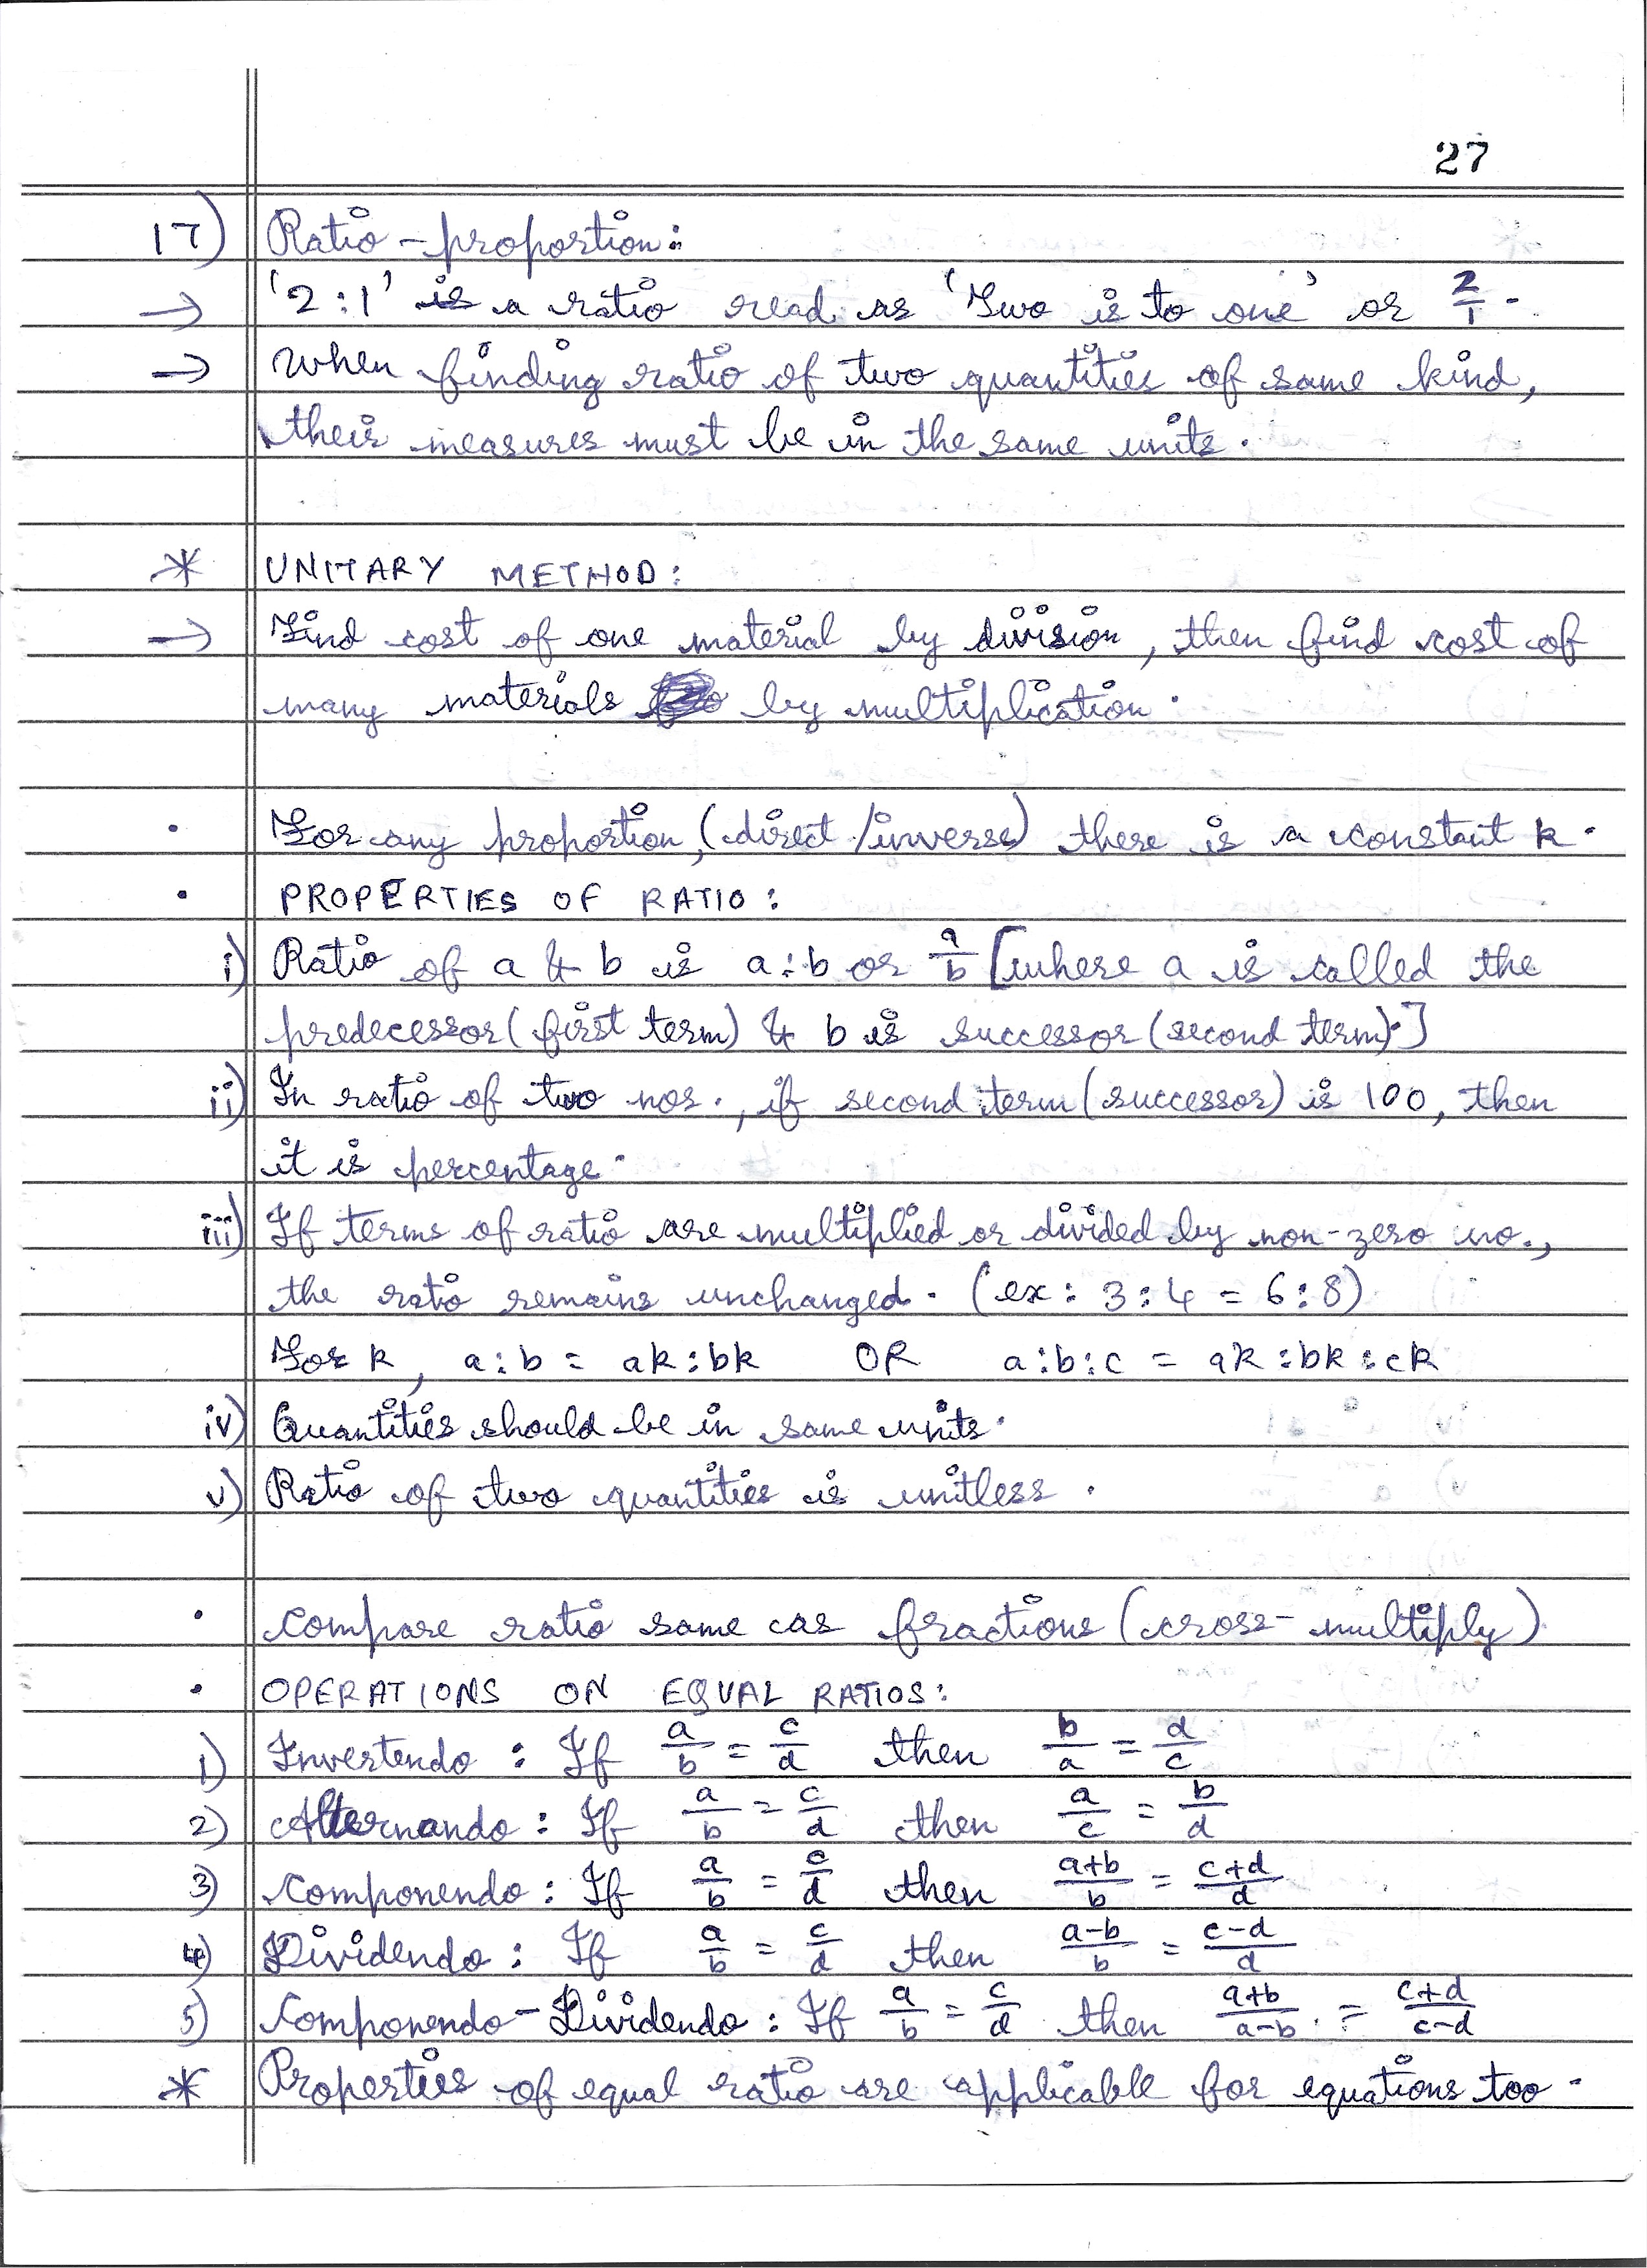 27
17) Ratio-proportion:
→ '2:1' is a ratio read as 'Two is to one' or 2/1.
→ When finding ratio of two quantities of same kind,
their measures must be in the same units.
* UNITARY METHOD:
→ Find cost of one material by division, then find cost of
many materials by multiplication.
• For any proportion, (direct/inverse) there is a constant k.
• PROPERTIES OF RATIO:
i) Ratio of a & b is a:b or a/b [where a is called the
predecessor (first term) & b is successor (second term).]
ii) In ratio of two nos., if second term (successor) is 100, then
it is percentage.
iii) If terms of ratio are multiplied or divided by non-zero no.,
the ratio remains unchanged. (ex: 3:4 = 6:8)
For k, a:b = ak:bk OR a:b:c = ak:bk:ck
iv) Quantities should be in same units.
v) Ratio of two quantities is unitless.
• Compare ratio same as fractions (cross-multiply)
• OPERATIONS ON EQUAL RATIOS:
1) Invertendo: If a/b = c/d then b/a = d/c
2) Alternando: If a/b = c/d then a/c = b/d
3) Componendo: If a/b = c/d then a+b/b = c+d/d
4) Dividendo: If a/b = c/d then a-b/b = c-d/d
5) Componendo-Dividendo: If a/b = c/d then a+b/a-b = c+d/c-d
* Properties of equal ratio are applicable for equations too.